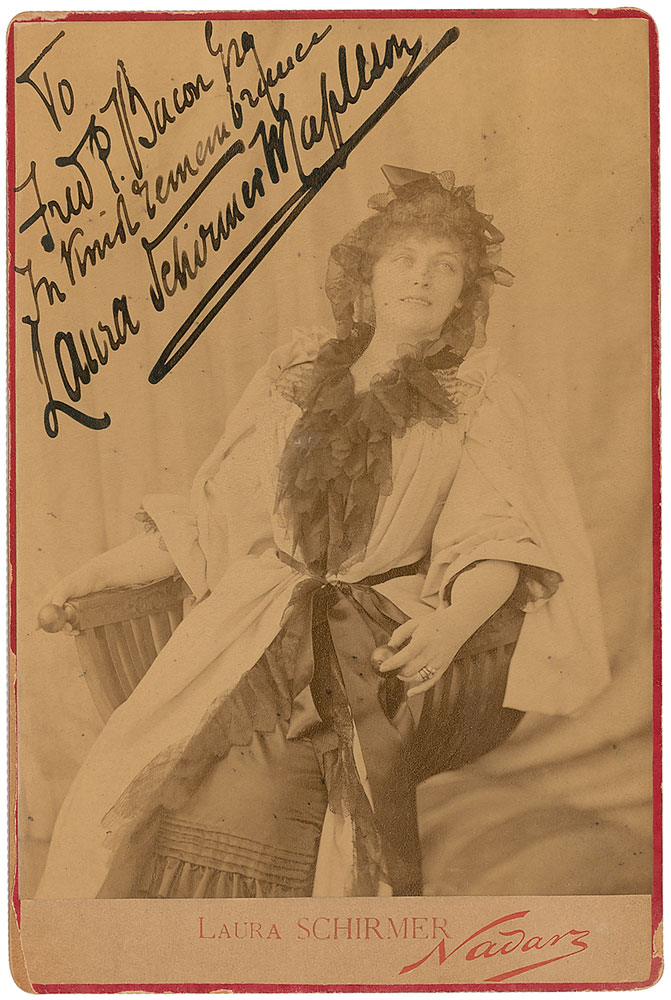 To
Fred P. Bacon Esq
In Kind remembrance
Laura Schirmer Mapleson
LAURA SCHIRMER
Nadar